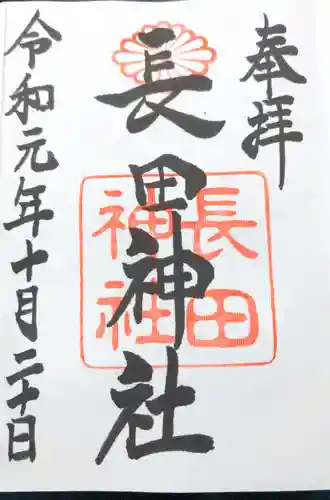 奉拝
長田神社
長田神社
令和元年十月二十日